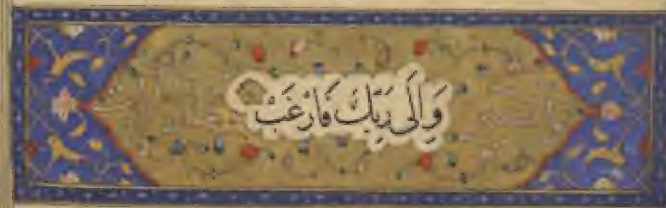 وَإِلَى رَبِّكَ فَارْغَبْ